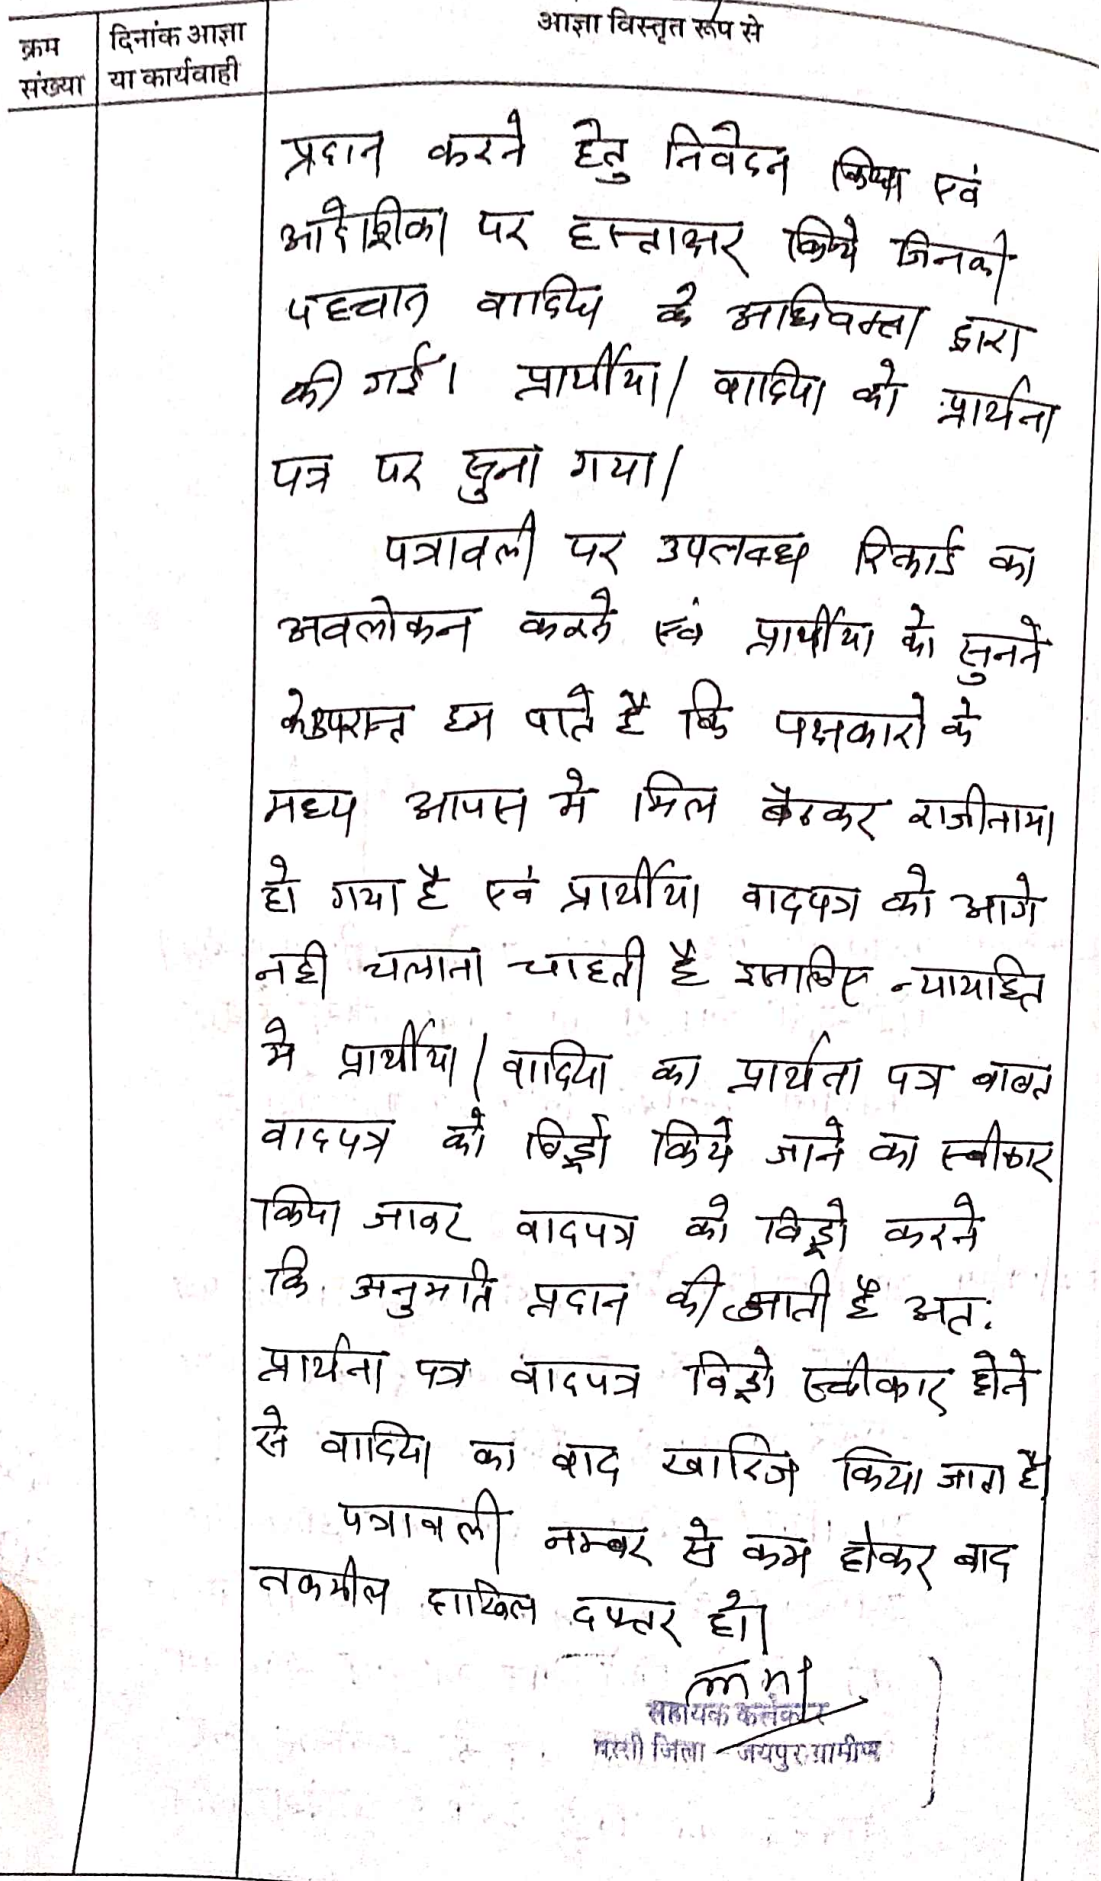 क्रम संख्या
दिनांक आज्ञा या कार्यवाही
आज्ञा विस्तृत रूप से
प्रदान करने हेतु निवेदन किया एवं
आदेशिका पर हस्ताक्षर किये जिनकी
पहचान वादिया के अधिवक्ता द्वारा
की गई। प्रार्थीया/ वादिया को प्रार्थना
पत्र पर सुना गया।
पत्रावली पर उपलब्ध रिकार्ड का
अवलोकन करने एवं प्रार्थीया को सुनने
के उपरान्त हम पाते है कि पक्षकारो के
मध्य आपस मे मिल बैठकर राजीनामा
हो गया है एवं प्रार्थीया वादपत्र को आगे
नही चलाना चाहती है इसलिए न्यायहित
मे प्रार्थीया/वादिया का प्रार्थना पत्र बाबत
वादपत्र को विड्रो किये जाने का स्वीकार
किया जाकर वादपत्र को विड्रो करने
कि अनुमति प्रदान की जाती है अत:
प्रार्थना पत्र वादपत्र विड्रो स्वीकार होने
से वादिया का वाद खारिज किया जाता है।
पत्रावली नम्बर से कम होकर बाद
तकमील दाखिल दफ्तर हो।
सहायक कलेक्टर
बस्सी जिला जयपुर ग्रामीण